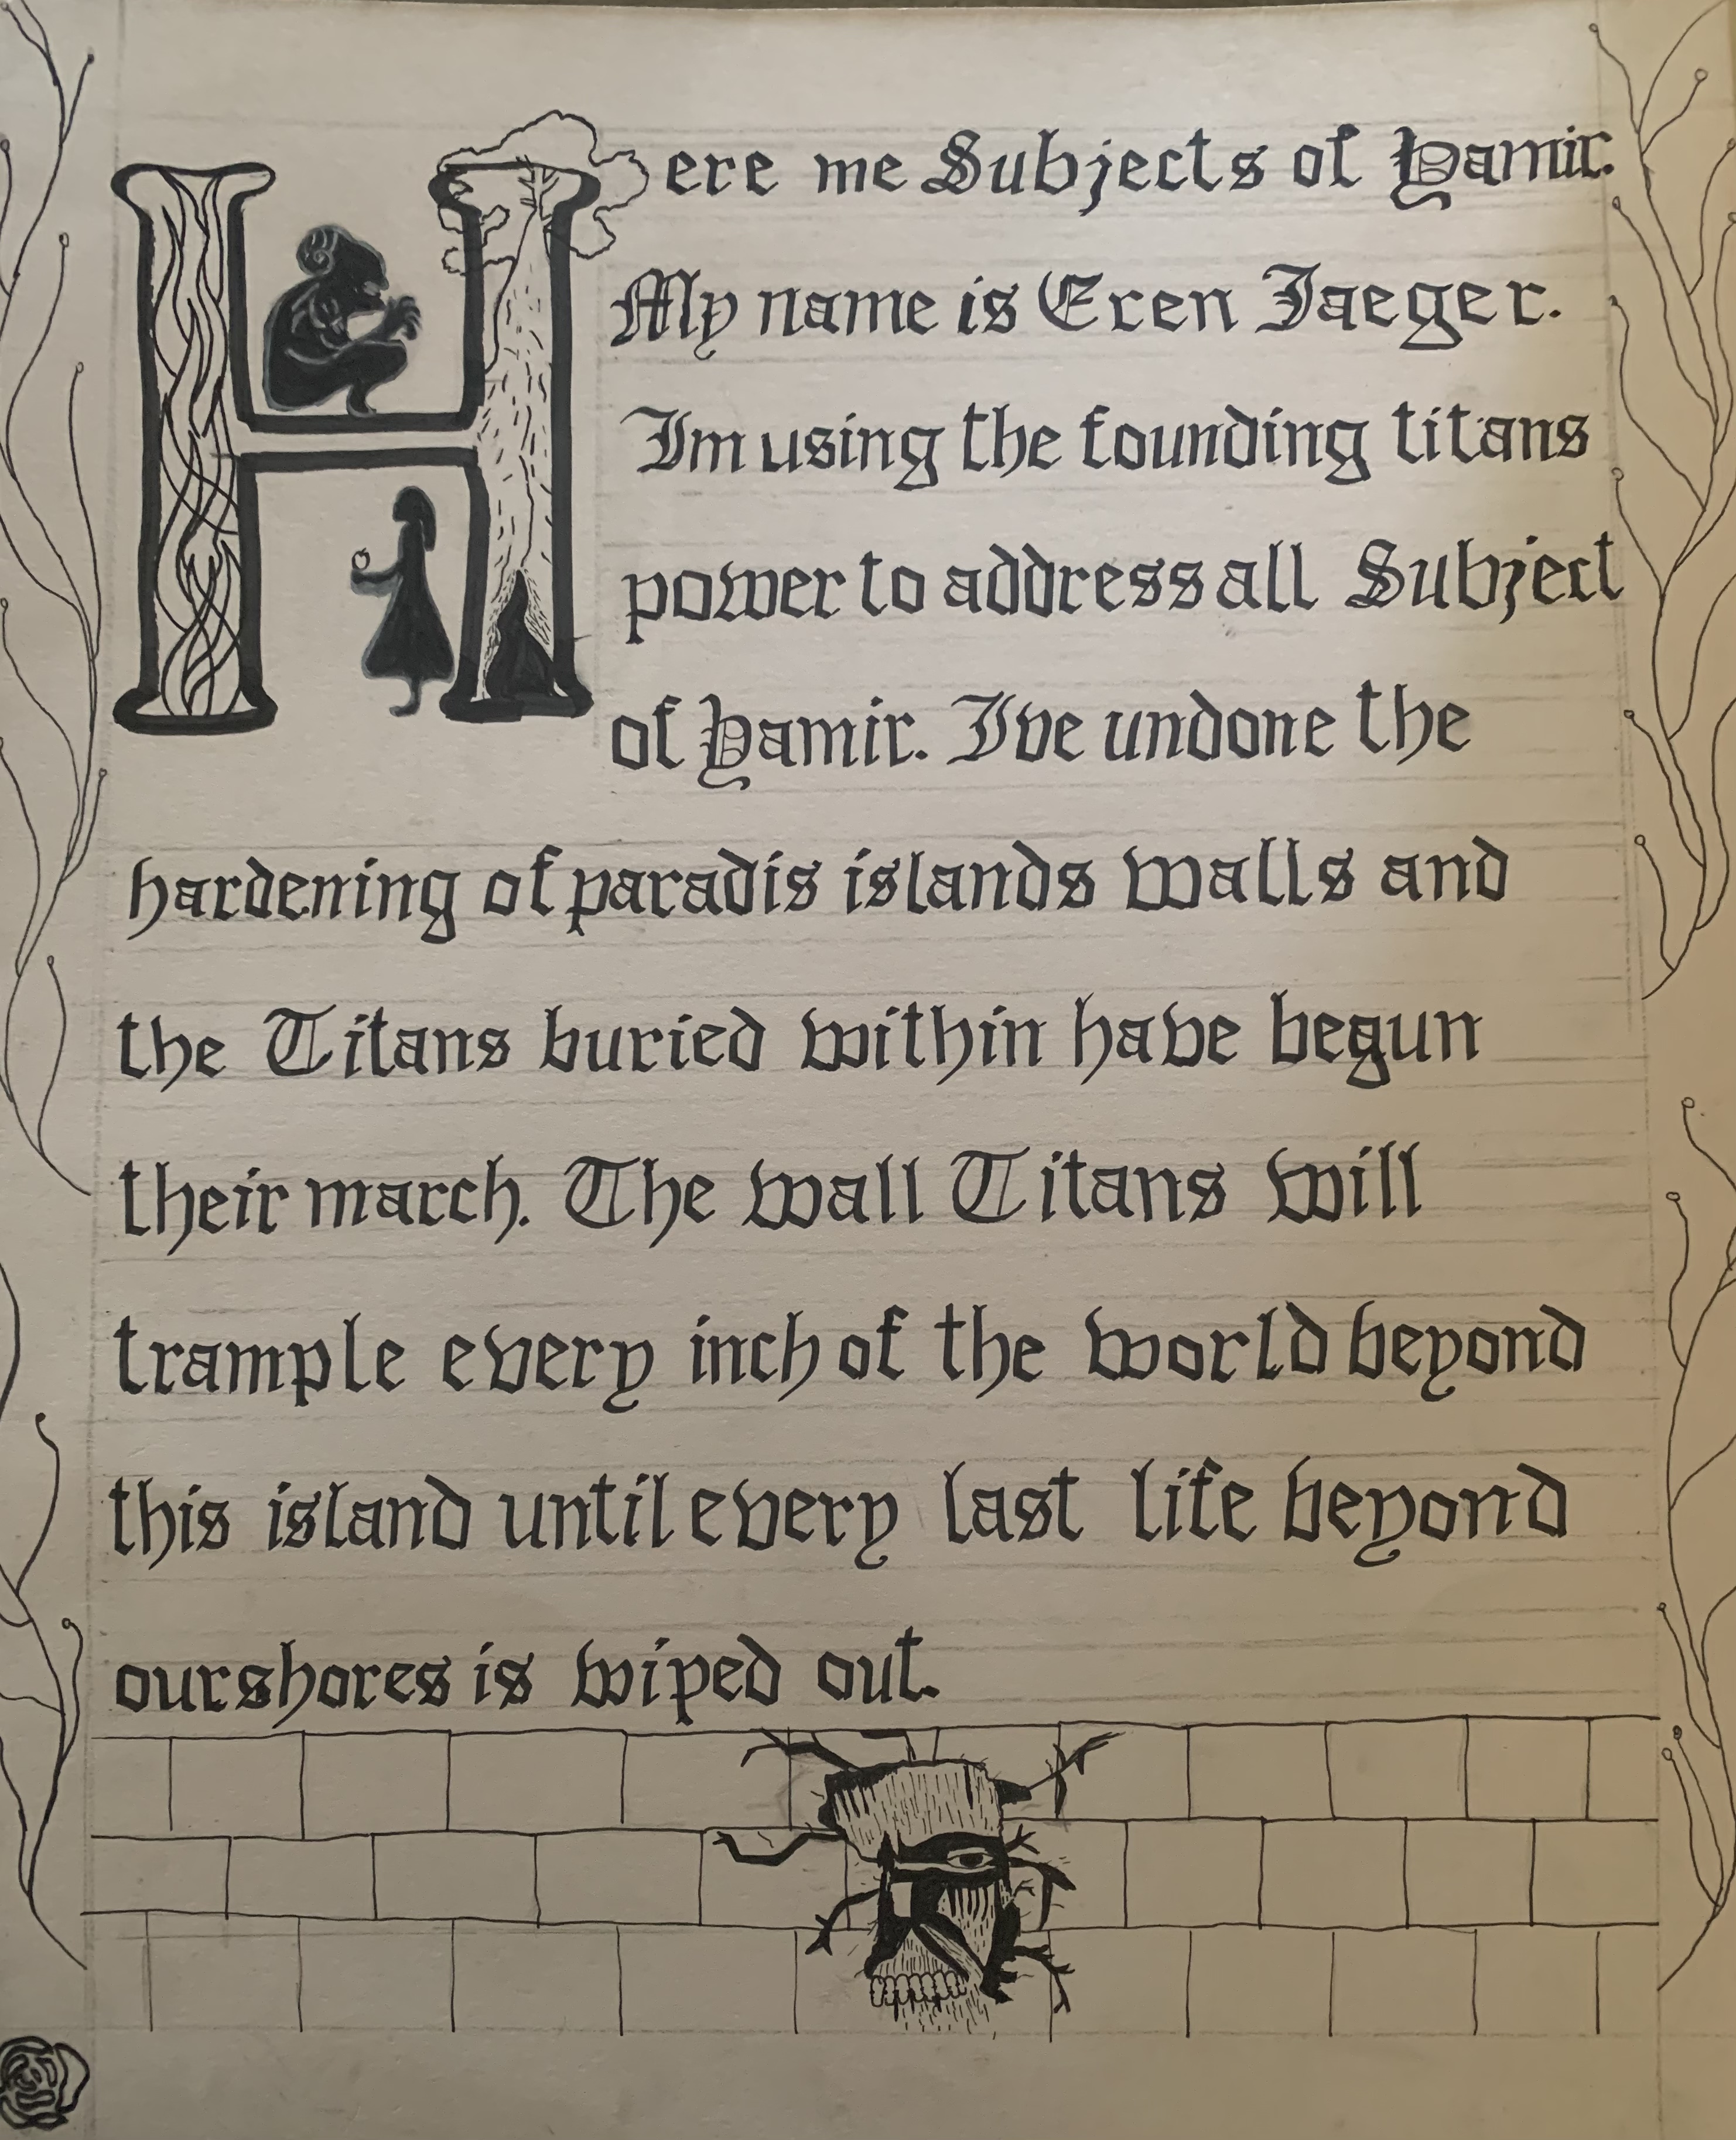 Here me Subjects of Yamir.
My name is Eren Jaeger.
Im using the founding titans
power to address all Subject
of Yamir. Ive undone the
hardening of paradis islands walls and
the Titans buried within have begun
their march. The wall Titans will
trample every inch of the world beyond
this island until every last life beyond
our shores is wiped out.